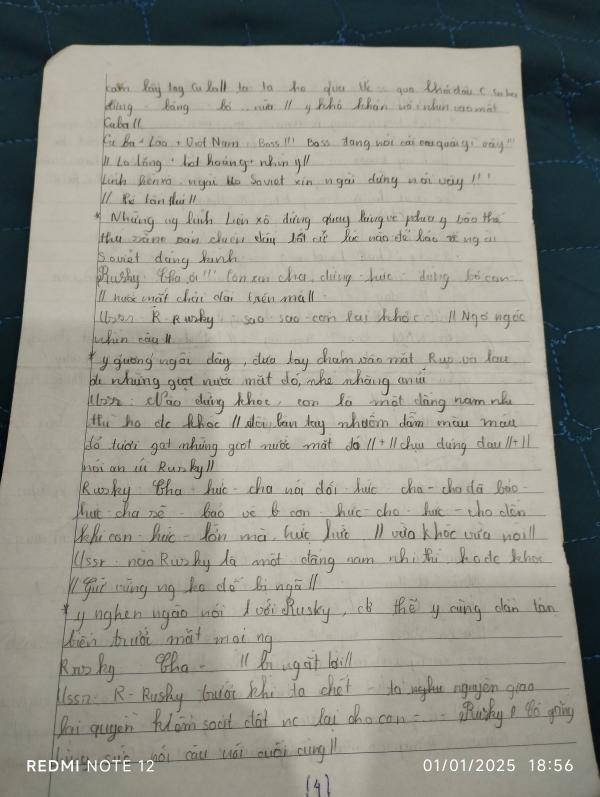 cầm lấy tay Cuba// ta ta ho qua
đừng - bảng bỏ .. nữa // y khó khăn nói nhìn vào mắt
Cuba //
Cu ba + Lào + Việt Nam : Boss !!! Boss đang nói cái quái gì vậy !!!
// Lo lắng + hốt hoảng + nhìn y//
Lính : ngài Soviet xin ngài đừng nói vậy !!!
* Những ng lính Liên xô đứng quay lưng về phía y bảo thế
thủ sẵn sàng bắt cứ lúc nào để bảo vệ ngài
Soviet đáng kính
Rusky Cha ơi !!! Con xin cha, đừng - hức - đừng bỏ con
// nước mắt chải dài trên má//
Ussr : R - Rusky : sao sao con lại khóc .. // Ngơ ngác
nhìn cậu //
* y gượng ngồi dậy, đưa tay chạm vào mắt Rus và lau
đi những giọt nước mắt đó, nhẹ nhàng an ủi
Ussr : Nào đừng khóc, con là một đấng nam nhi
thì ko đc khóc // đôi bàn tay nhuốm đẫm màu máu
đỏ tươi gạt những giọt nước mắt đó // + // chịu đựng đau // + //
nói an ủi Rusky//
Rusky Cha - hức - cha nói dối - hức cha - cha đã bảo -
hức cha sẽ - bảo vệ con - hức - cho - hức - cho đến
khi con - hức - lớn mà, hức hức // vừa khóc vừa nói//
Ussr : nào Rusky là một đấng nam nhi thì ko đc khóc
// Giữ vững ng ko để bị ngã //
* y nghẹn ngào nói với Rusky, cơ thể y cũng dần tan
biến trước mắt mọi ng
Rusky Cha - // bị ngắt lời//
Ussr : R - Rusky trước khi ta chết - ta nguyện giao
lại quyền kiểm soát đất nc lại cho con - - Rusky // Cố gắng
nói câu nói cuối cùng //
(4)
REDMI NOTE 12
01/01/2025 18:56